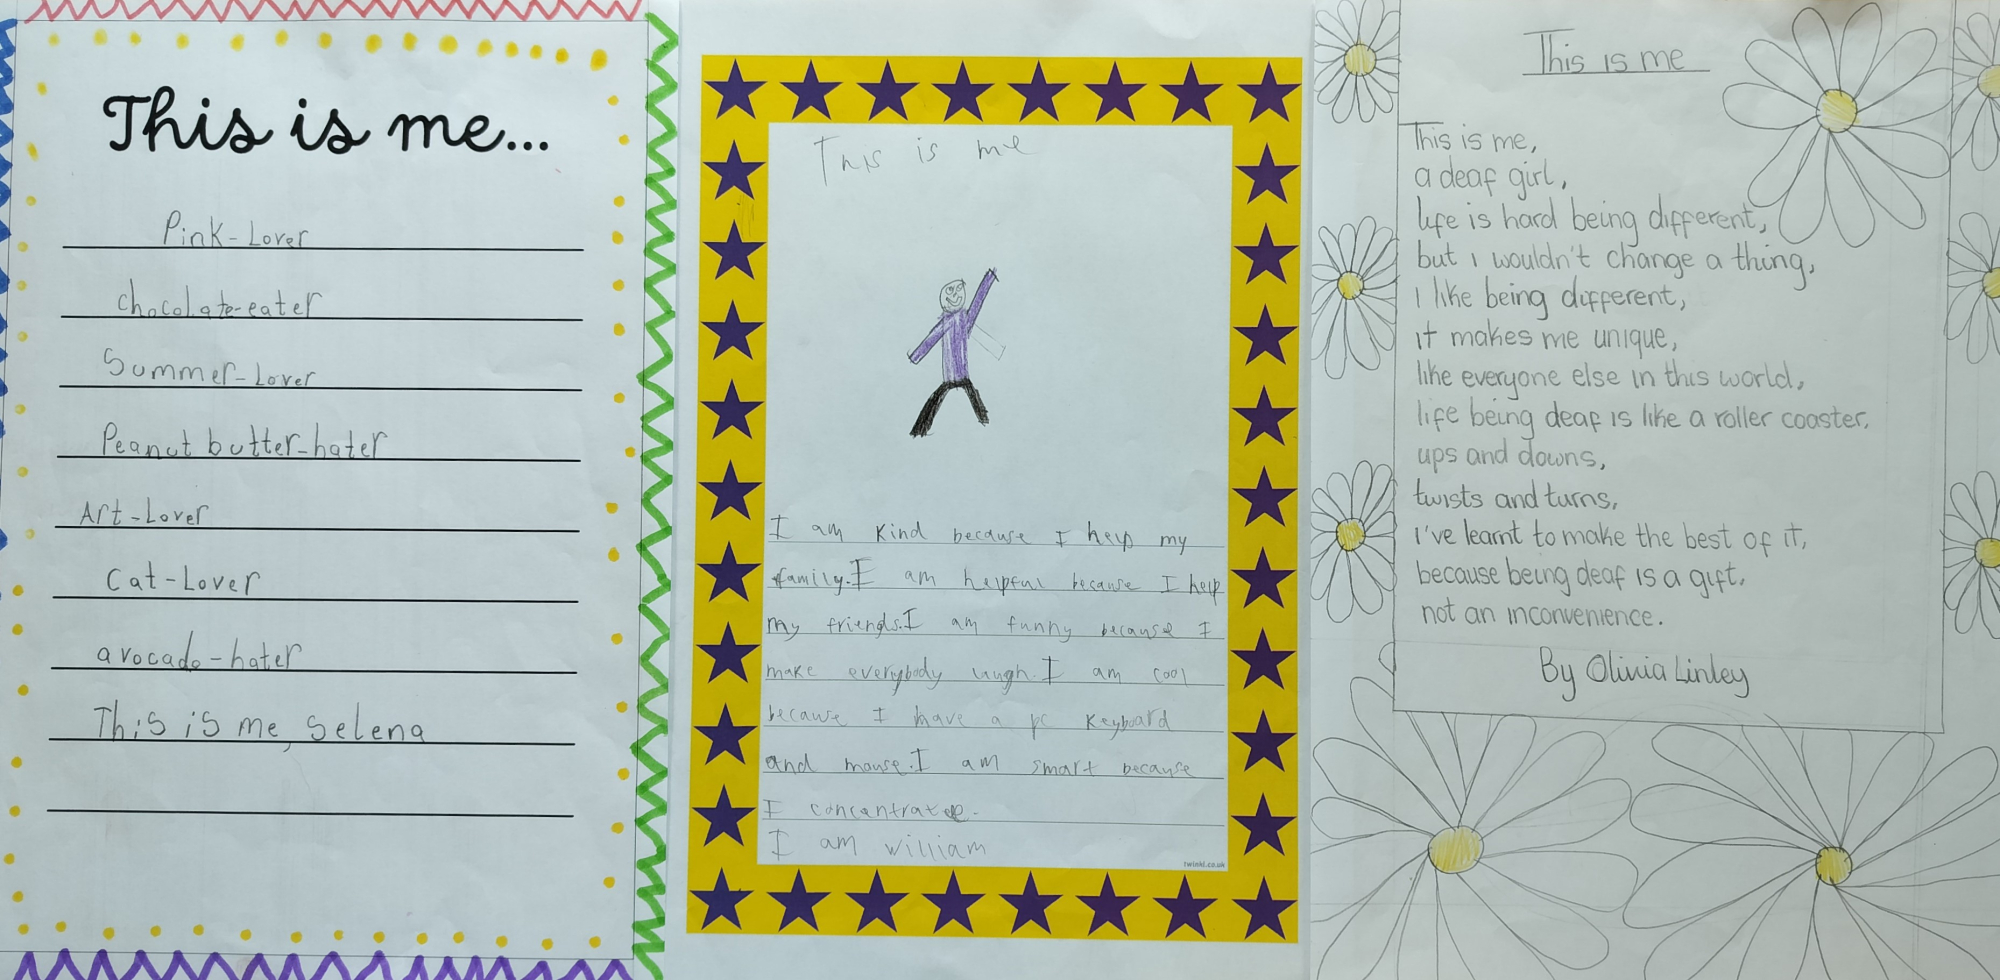 This is me...
Pink-Lover
chocolate-eater
Summer-Lover
Peanut butter-hater
Art-Lover
Cat-Lover
avocado-hater
This is me, Selena
This is me
I am kind because I help my
family. I am helpful because I help
my friends. I am funny because I
make everybody laugh. I am cool
because I have a pc keyboard
and mouse. I am smart because
I concantrate.
I am william
twinkl.co.uk
This is me
This is me,
a deaf girl,
life is hard being different,
but I wouldn't change a thing,
I like being different,
it makes me unique,
like everyone else in this world,
life being deaf is like a roller coaster,
ups and downs,
twists and turns,
I've learnt to make the best of it,
because being deaf is a gift,
not an inconvenience.
By Olivia Linley